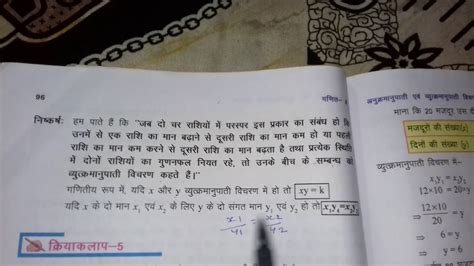 96
गणित-
निष्कर्ष: हम पाते हैं कि "जब दो चर राशियों में परस्पर इस प्रकार का संबंध हो कि
उनमें से एक राशि का मान बढ़ाने से दूसरी राशि का मान कम हो या पहली
राशि का मान कम करने से दूसरी राशि का मान बढ़ता है तथा प्रत्येक स्थिति
में दोनों राशियों का गुणनफल नियत रहे, तो उनके बीच के सम्बन्ध को
व्युत्क्रमानुपाती विचरण कहते हैं।"
गणितीय रूप में, यदि x और y व्युत्क्रमानुपाती विचरण में हो तो xy=k
यदि x के दो मान x₁ एवं x₂ के लिए y के दो संगत मान y₁ एवं y₂ हो तो
x1 = x2
y1 y2
क्रियाकलाप–5
अनुक्रमानुपाती एवं व्युत्क्रमानुपाती
माना कि 20 मजदूर उस
मजदूरों की संख्या(x)
दिनों की संख्या (y)
व्युत्क्रमानुपाती विचरण में–
x₁y₁ =
12×10 = 20×
⇒ 12×10
20
⇒ 6 = y
⇒ y = 6